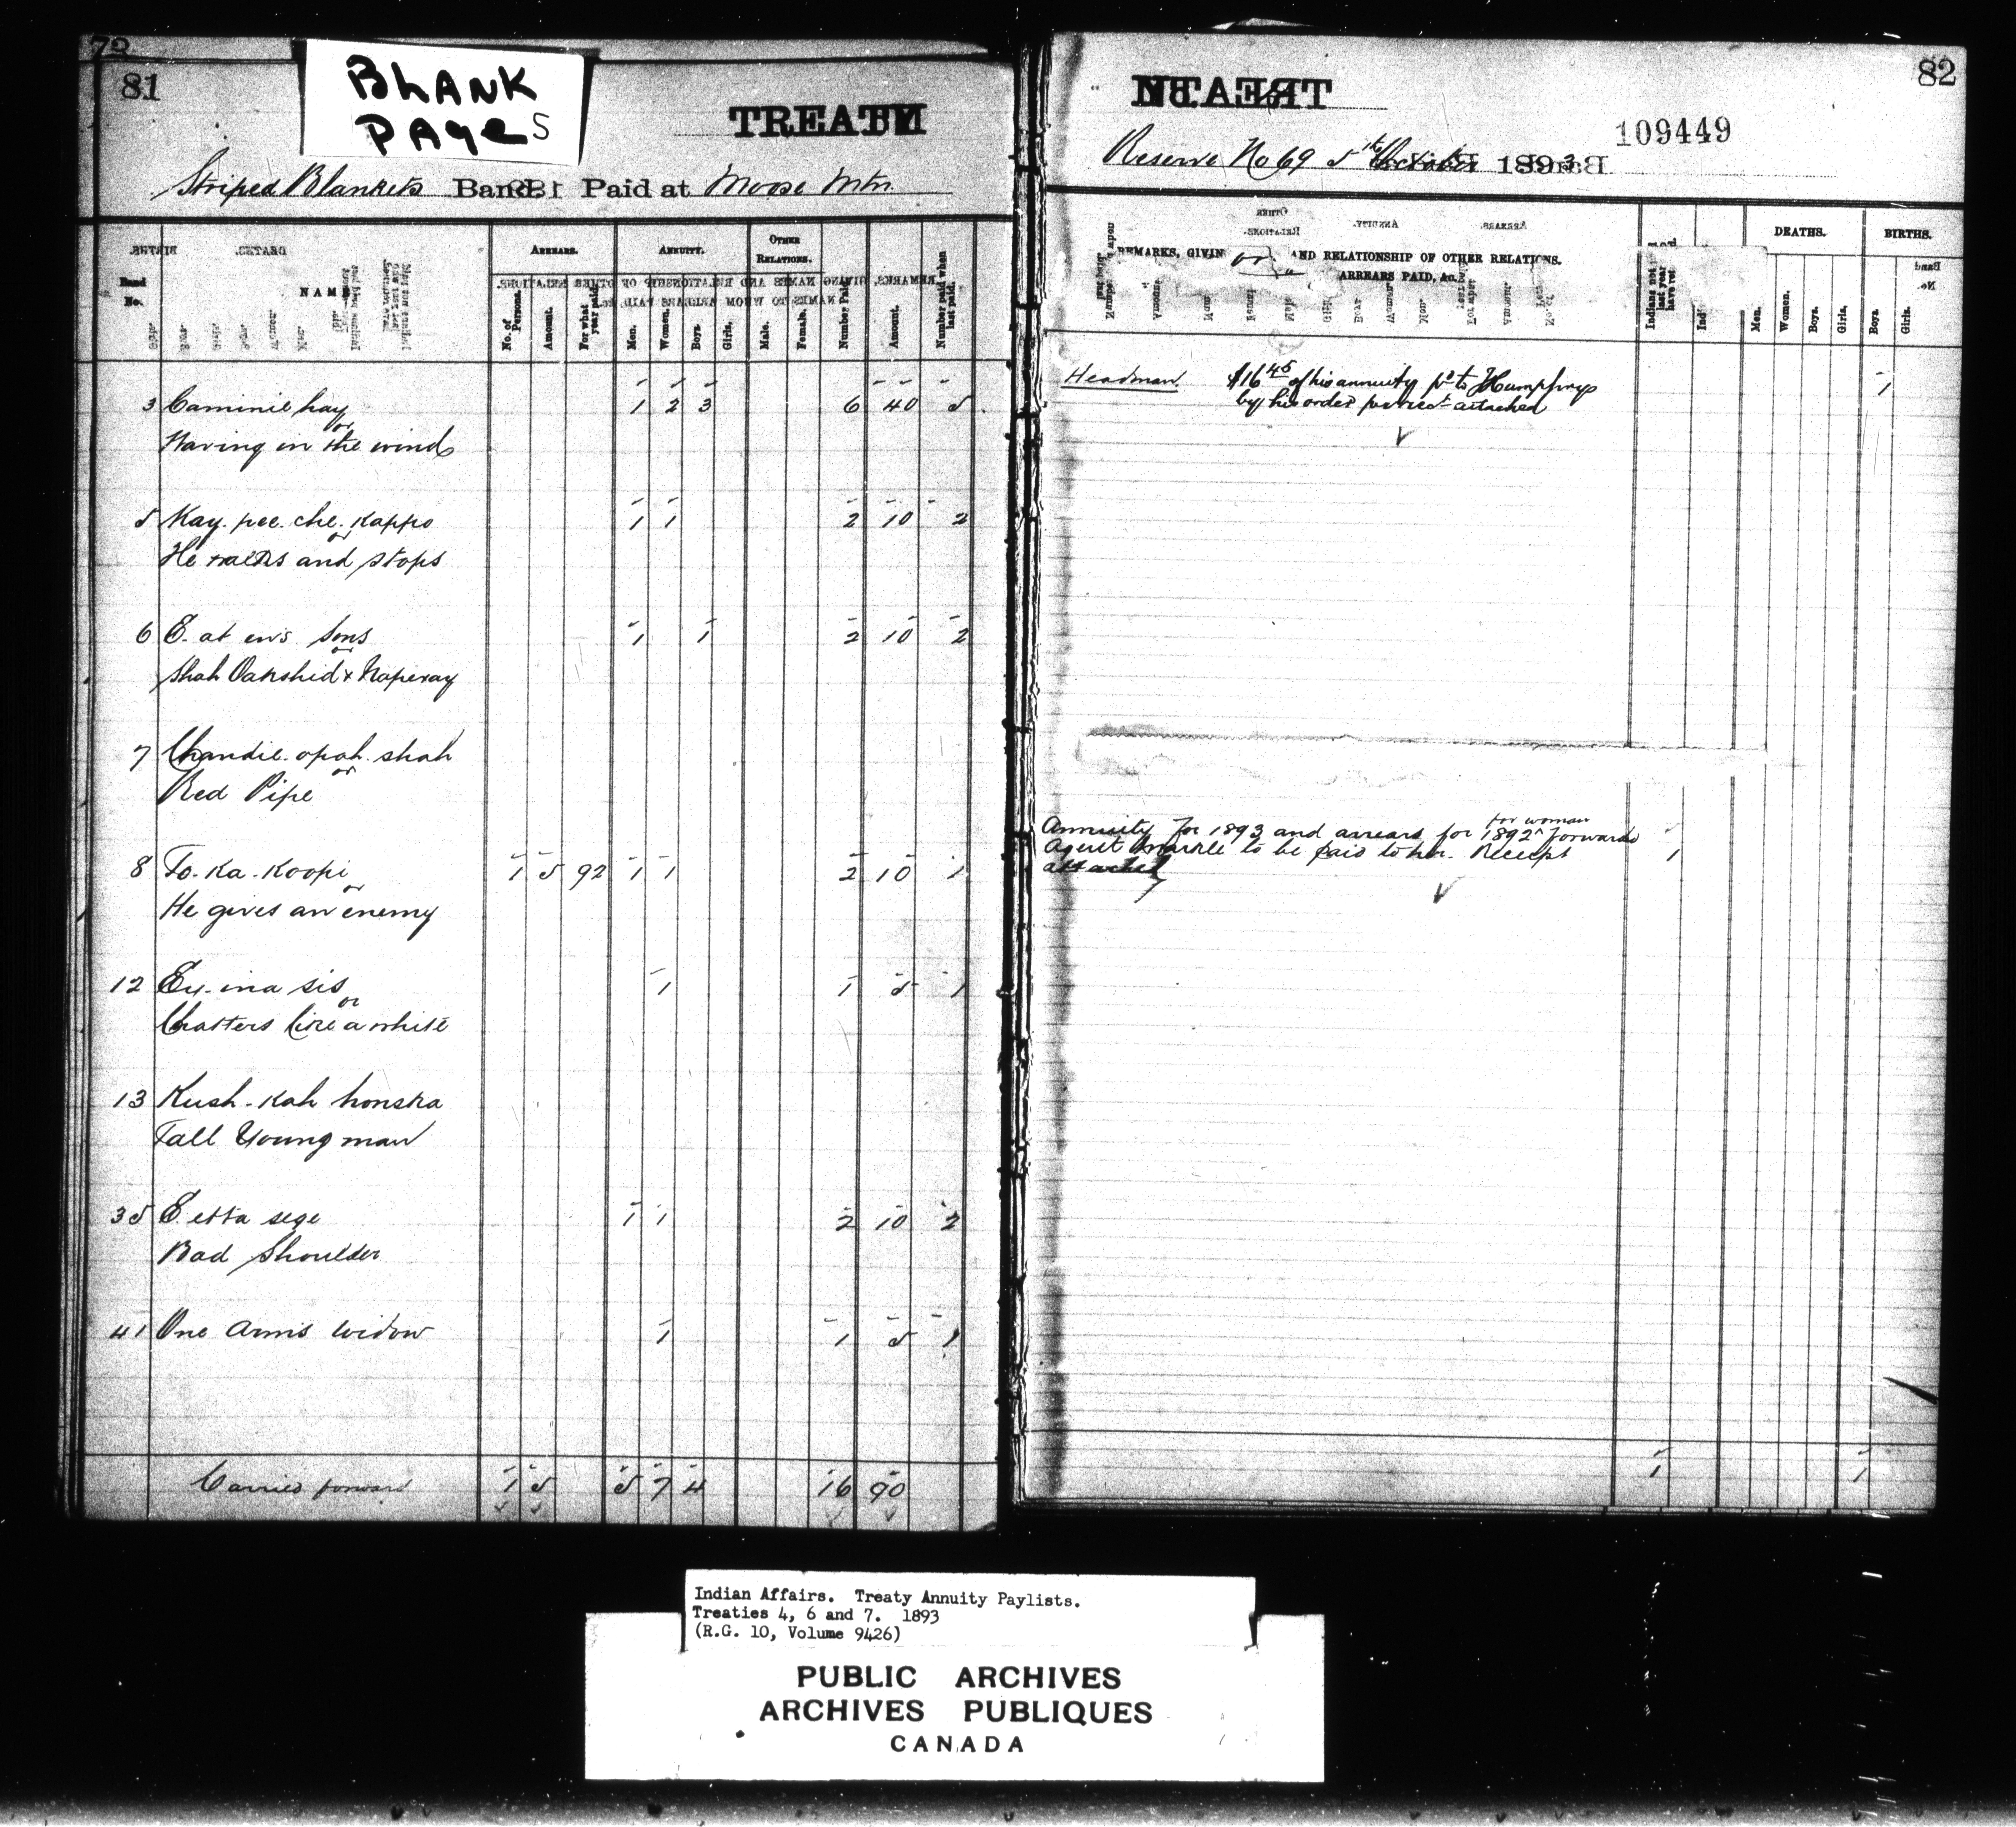 73
81
BLANK
PAGES
TREATY
Striped Blankets Band. Paid at Moose Mtn.
Band
No.
NAME
ARREARS.
ANNUITY.
OTHER
RELATIONS.
No. of Persons.
Amount.
For what year paid.
Men.
Women.
Boys.
Girls.
Male.
Female.
Number Paid.
Amount.
Number paid when last paid.
3 Caminie hay 1 2 3 6 40 5
or
Waving in the wind
5 Kay. pee. che. Kappo 1 1 2 10 2
or
He walks and stops
6 E. at en's Sons 1 1 2 10 2
or
Shah Oakshid & Napeway
7 Chandie. opah. shah
or
Red Pipe
8 To. Ka. Koopi 1 5 92 1 1 2 10 1
or
He gives an enemy
12 Ey. ina sis 1 1 5 1
or
Chatters like a white
13 Kush. Kah honska
Tall Young man
35 E etta sege 1 1 2 10 2
Bad Shoulder
41 One Arm's Widow 1 1 5 1
Carried forward 1 5 5 7 4 16 90
82
109449
Reserve No 69 5th October 1893
REMARKS, GIVIN AND RELATIONSHIP OF OTHER RELATIONS.
ARREARS PAID, &c.
Indians not paid last year
DEATHS.
BIRTHS.
Men.
Women.
Boys.
Girls.
Boys.
Girls.
Headman. $16 45 of his annuity pd to J Humphrys 1
by his order per rect attached
for woman
Annuity for 1893 and arrears for 1892 ^ forwarded
Agent Markle to be paid to her. Receipt 1
attached
1 1
Indian Affairs. Treaty Annuity Paylists.
Treaties 4, 6 and 7. 1893
(R.G. 10, Volume 9426)
PUBLIC ARCHIVES
ARCHIVES PUBLIQUES
CANADA